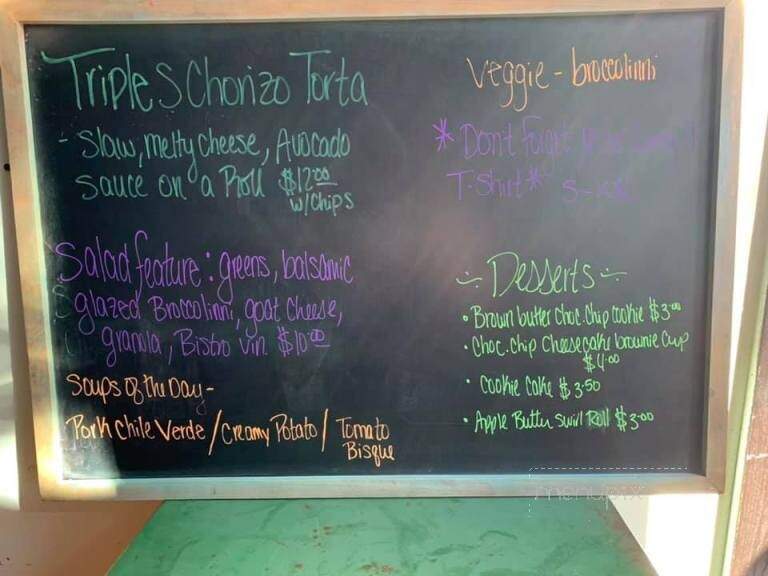 Triple S Chorizo Torta
- Slaw, melty cheese, Avocado
sauce on a Roll $12.00
w/chips
Salad feature: greens, balsamic
glazed Broccolinni, goat cheese,
granola, Bistro vin. $10.00
Soups of the Day -
Pork Chile Verde / Creamy Potato / Tomato
Bisque
Veggie - broccolinni
* Don't Forget
T-Shirt * S -
Desserts
• Brown butter Choc. Chip cookie $3.00
• Choc. chip Cheesecake brownie cup
$4.00
• Cookie Cake $3.50
• Apple Butter Swirl Roll $3.00
menupix